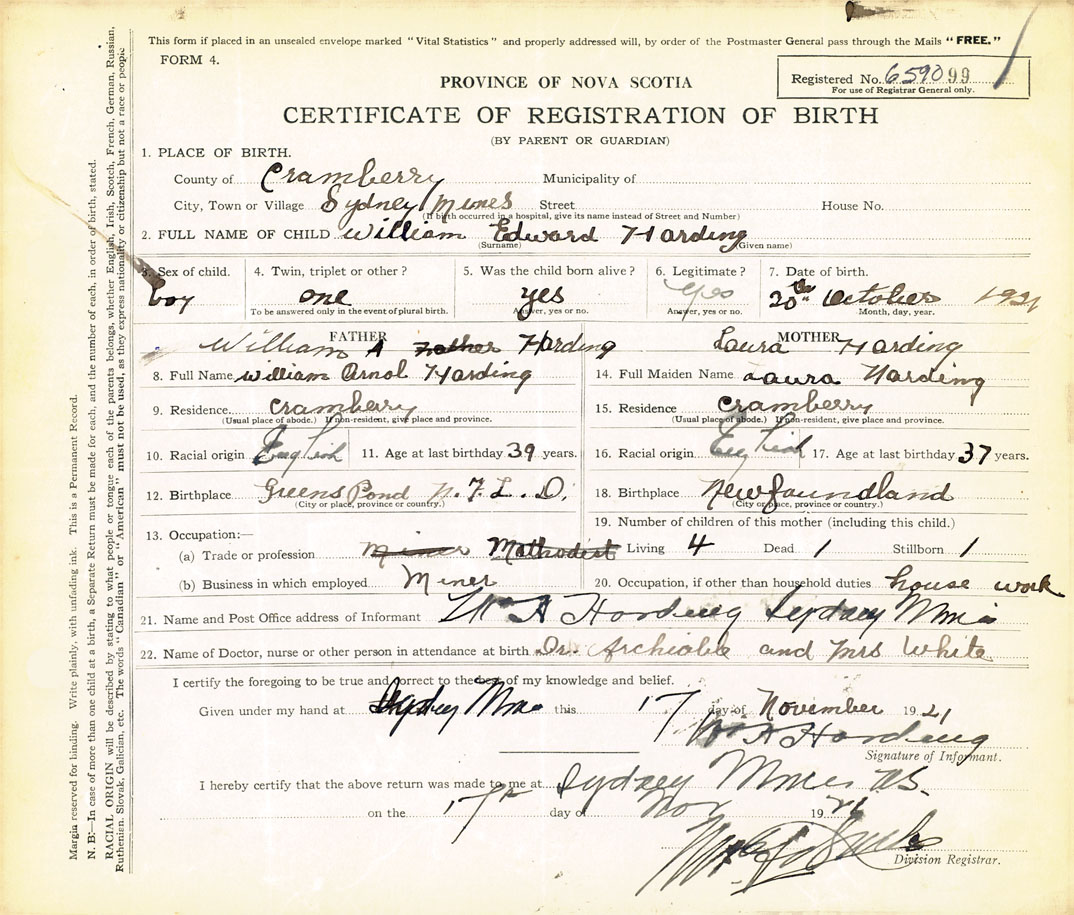 This form if placed in an unsealed envelope marked "Vital Statistics" and properly addressed will, by order of the Postmaster General pass through the Mails "FREE."
FORM 4.
Registered No. 659099
For use of Registrar General only.
PROVINCE OF NOVA SCOTIA
CERTIFICATE OF REGISTRATION OF BIRTH
(BY PARENT OR GUARDIAN)
1. PLACE OF BIRTH.
County of Cramberry Municipality of
City, Town or Village Sydney Mines Street House No.
(If birth occurred in a hospital, give its name instead of Street and Number)
2. FULL NAME OF CHILD William Edward Harding
(Surname) (Given name)
3. Sex of child. 4. Twin, triplet or other? 5. Was the child born alive? 6. Legitimate? 7. Date of birth.
boy one yes yes 20th October 1921
To be answered only in the event of plural birth. Answer, yes or no. Answer, yes or no. Month, day, year.
FATHER MOTHER
William A Harding Laura Harding
8. Full Name William Arnol Harding 14. Full Maiden Name Laura Harding
9. Residence Cramberry 15. Residence Cramberry
(Usual place of abode.) If non-resident, give place and province. (Usual place of abode.) If non-resident, give place and province.
10. Racial origin English 11. Age at last birthday 39 years. 16. Racial origin English 17. Age at last birthday 37 years.
12. Birthplace Greens Pond N.F.L.D. 18. Birthplace Newfoundland
(City or place, province or country.) (City or place, province or country.)
13. Occupation:— 19. Number of children of this mother (including this child.)
(a) Trade or profession Miner Mathodist Living 4 Dead 1 Stillborn 1
(b) Business in which employed Miner 20. Occupation, if other than household duties house work
21. Name and Post Office address of Informant Wm A Harding Sydney Mines
22. Name of Doctor, nurse or other person in attendance at birth Dr. Archiable and Mrs White
I certify the foregoing to be true and correct to the best of my knowledge and belief.
Given under my hand at Sydney Mines this 17 day of November 1921
Wm A Harding
Signature of Informant.
I hereby certify that the above return was made to me at Sydney Mines N.S.
on the 17th day of Nov 1921
Division Registrar.
Margin reserved for binding. Write plainly, with unfading ink. This is a Permanent Record.
N. B:—In case of more than one child at a birth, a Separate Return must be made for each, and the number of each, in order of birth, stated.
RACIAL ORIGIN will be described by stating to what people or tongue each of the parents belongs, whether English, Irish, Scotch, French, German, Russian,
Ruthenian, Slovak, Galician, etc. The words "Canadian" or "American" must not be used, as they express nationality or citizenship but not a race or people